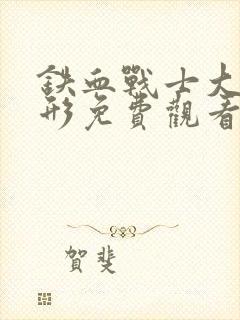 鉄血戰士大
形免費觀看
賀斐